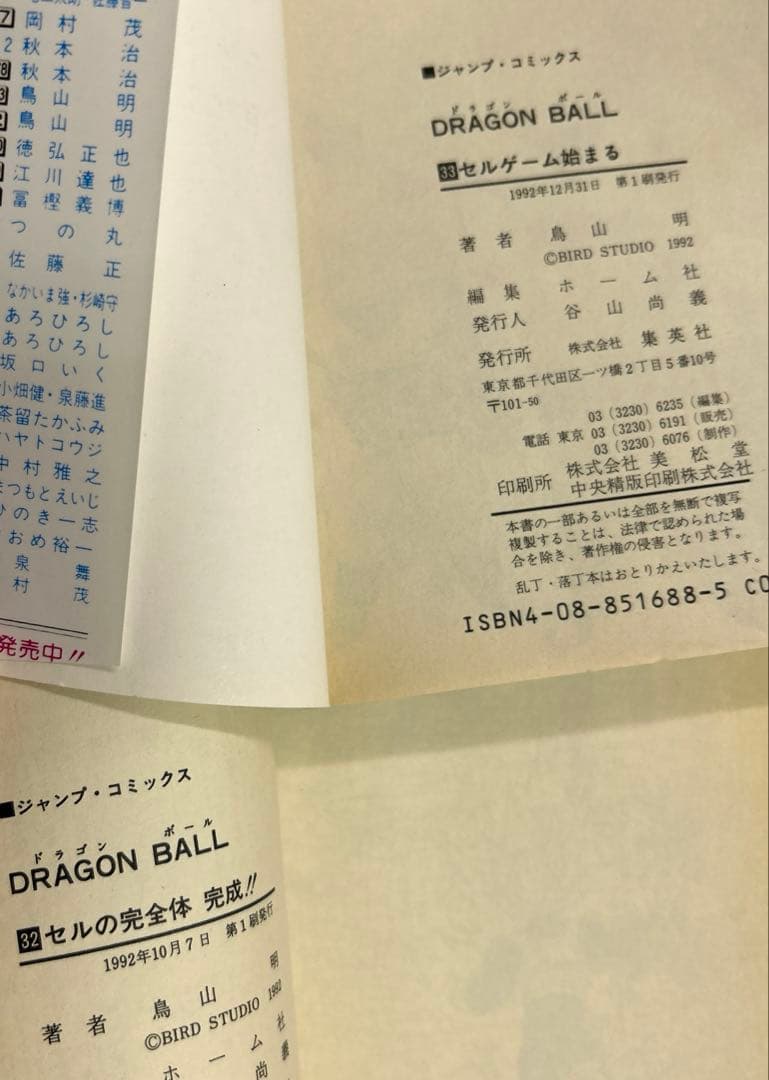 7 岡村 茂
2 秋本 治
8 秋本 治
3 鳥山 明
鳥山 明
徳弘正也
江川達也
冨樫義博
つの丸
佐藤 正
なかいま強・杉崎守
あろひろし
あろひろし
坂口いく
小畑健・泉藤進
茶留たかふみ
ハヤトコウジ
中村雅之
まつもとえいじ
ひのき一志
おめ裕一
泉 舞
村 茂
発売中!!
■ジャンプ・コミックス
ドラゴン ボール
DRAGON BALL
33 セルゲーム始まる
1992年12月31日 第1刷発行
著者 鳥山 明
©BIRD STUDIO 1992
編集 ホーム社
発行人 谷山尚義
発行所 株式会社 集英社
東京都千代田区一ツ橋2丁目5番10号
〒101-50
03(3230)6235(編集)
電話 東京 03(3230)6191(販売)
03(3230)6076(制作)
印刷所 株式会社 美松堂
中央精版印刷株式会社
本書の一部あるいは全部を無断で複写
複製することは、法律で認められた場
合を除き、著作権の侵害となります。
乱丁・落丁本はおとりかえいたします。
ISBN4-08-851688-5 C0
■ジャンプ・コミックス
ドラゴン ボール
DRAGON BALL
32 セルの完全体 完成!!
1992年10月7日 第1刷発行
著者 鳥山 明
©BIRD STUDIO
ホーム社
尚義